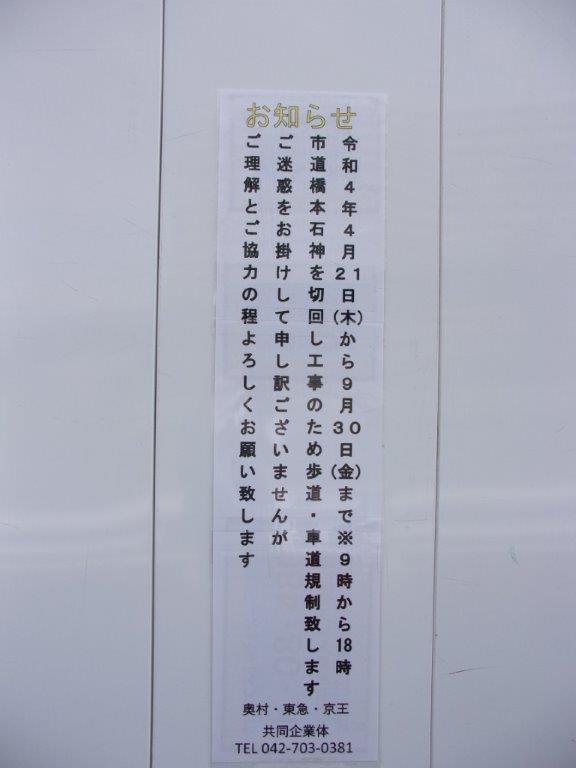 お知らせ
令和４年４月２１日(木)から９月３０日(金)まで※９時から18時
市道橋本石神を切回し工事のため歩道・車道規制致します
ご迷惑をお掛けして申し訳ございませんが
ご理解とご協力の程よろしくお願い致します
奥村・東急・京王
共同企業体
TEL 042-703-0381